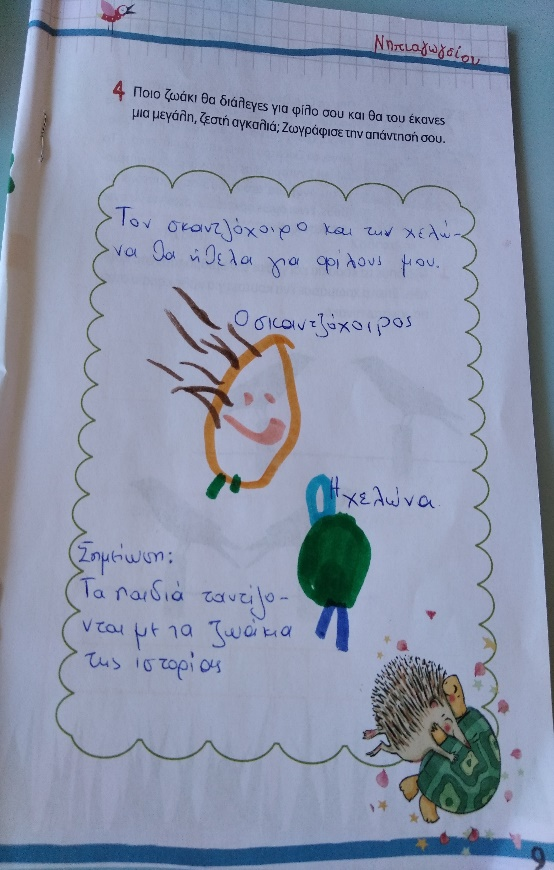 Νηπιαγωγείου
4 Ποιο ζωάκι θα διάλεγες για φίλο σου και θα του έκανες
μια μεγάλη, ζεστή αγκαλιά; Ζωγράφισε την απάντησή σου.
Τον σκαντζόχοιρο και την χελώ-
να θα ήθελα για φίλους μου.
Ο σκαντζόχοιρος
Η χελώνα
Σημείωση:
Τα παιδιά ταυτίζο-
νται με τα ζωάκια
της ιστορίας
9